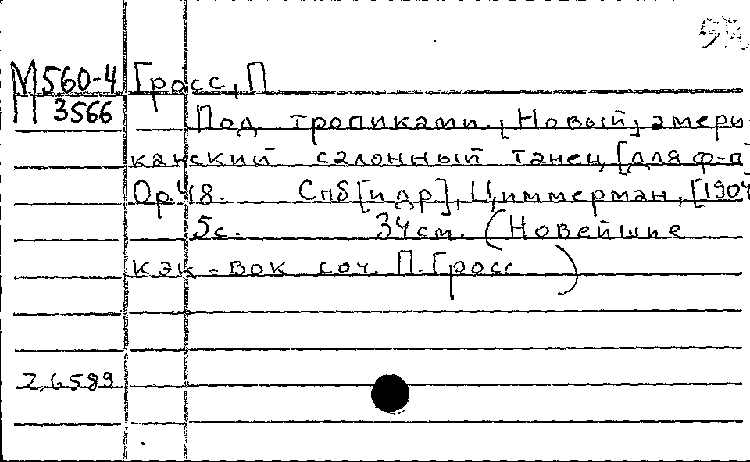 М560-4 Гросс, П
М 3566
Под тропиками. [Новый] амери-
канский салонный танец [для ф-п]
Op. 48. Спб [и др], Циммерман, [1904
5с. 34 см. (Новейшие
кэк-вок соч. П. Гросс)
2,6589